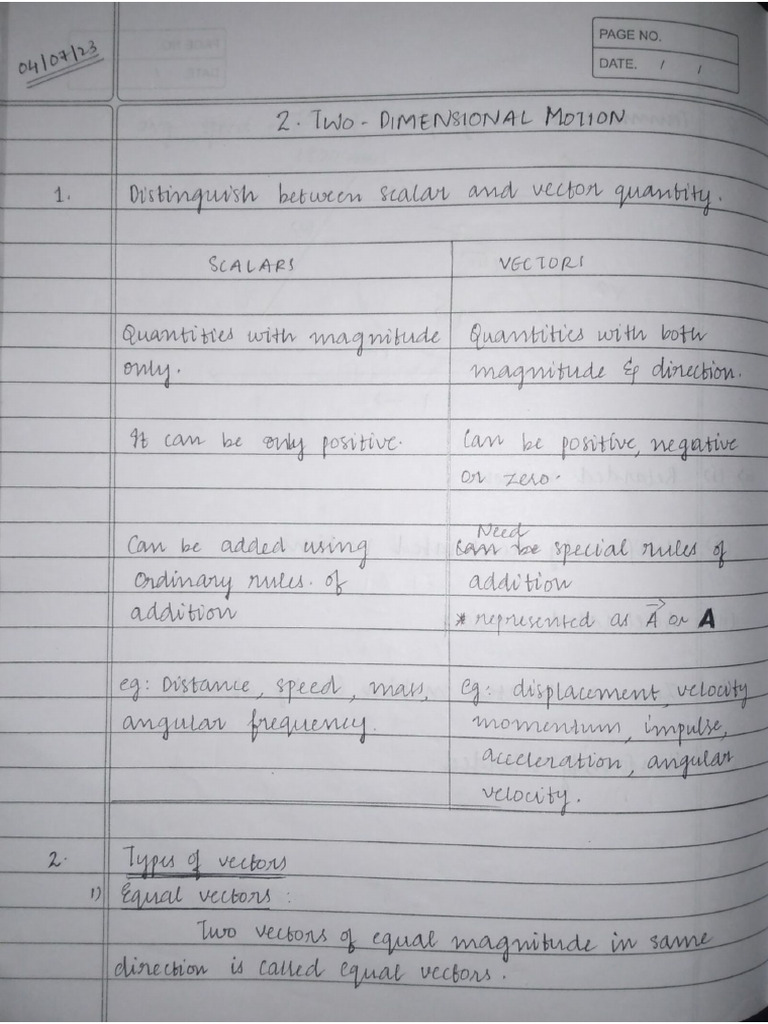 04/07/23
PAGE NO.
DATE. / /
2. TWO-DIMENSIONAL MOTION
1. Distinguish between scalar and vector quantity.
SCALARS
VECTORS
Quantities with magnitude
only.
Quantities with both
magnitude & direction.
It can be only positive.
Can be positive, negative
or zero.
Can be added using
ordinary rules. of
addition
Need
can be special rules of
addition
* represented as A⃗ or A
eg: Distance, speed, mass,
angular frequency.
Eg: displacement, velocity
momentum, impulse,
acceleration, angular
velocity.
2. Types of vectors
1) Equal vectors :
Two vectors of equal magnitude in same
direction is called equal vectors.